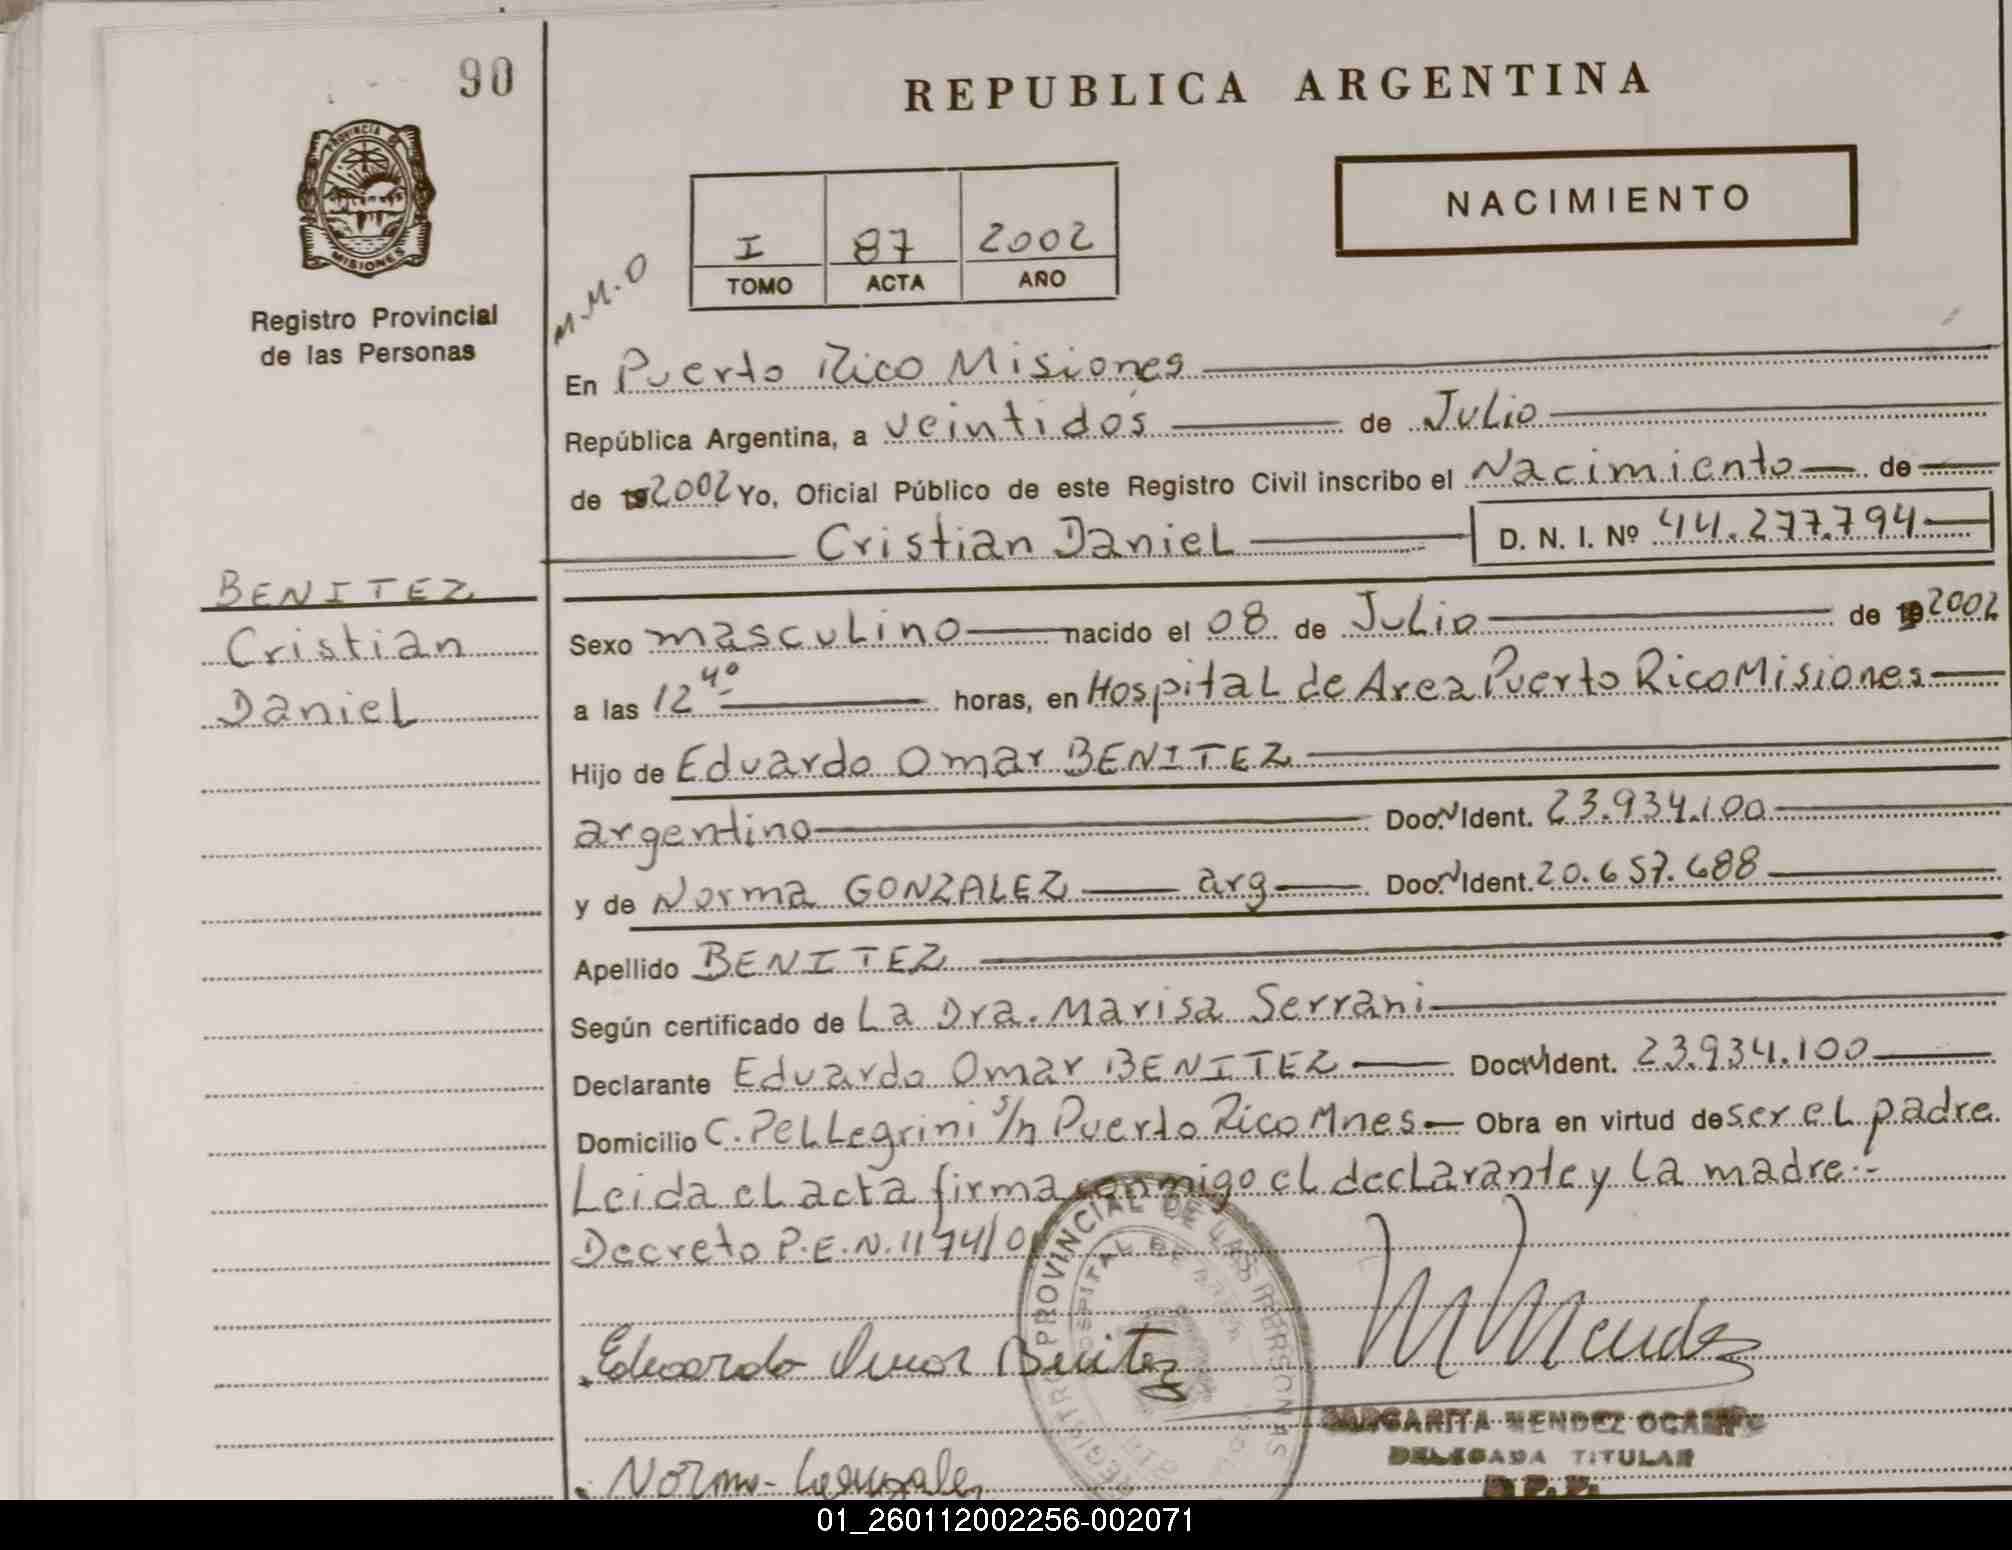 90
REPUBLICA ARGENTINA
PROVINCIA DE
MISIONES
Registro Provincial
de las Personas
NACIMIENTO
I 87 2002
TOMO ACTA AÑO
M.M.O
En Puerto Rico Misiones
República Argentina, a veintidós de Julio
de 192002 Yo, Oficial Público de este Registro Civil inscribo el Nacimiento de
Cristian Daniel D. N. I. Nº 44.277.794
BENITEZ
Cristian
Daniel
Sexo masculino nacido el 08 de Julio de 192002
a las 12 40 horas, en Hospital de Area Puerto Rico Misiones
Hijo de Eduardo Omar BENITEZ
argentino Doc. N Ident. 23.934.100
y de Norma GONZALEZ arg Doc. N Ident. 20.657.688
Apellido BENITEZ
Según certificado de La Dra. Marisa Serrani
Declarante Eduardo Omar BENITEZ Doc. N Ident. 23.934.100
Domicilio C. PeLLegrini s/n Puerto Rico Mnes Obra en virtud de ser el padre
Leida el acta firma conmigo el declarante y la madre:-
Decreto P.E.N. 1174/0
REGISTRO PROVINCIAL DE LAS PERSONAS
HOSPITAL DE AREA
Eduardo Omar Benitez
M Mendez
MARGARITA MENDEZ OCAMPO
DELEGADA TITULAR
Norma Gonzalez
01_260112002256-002071